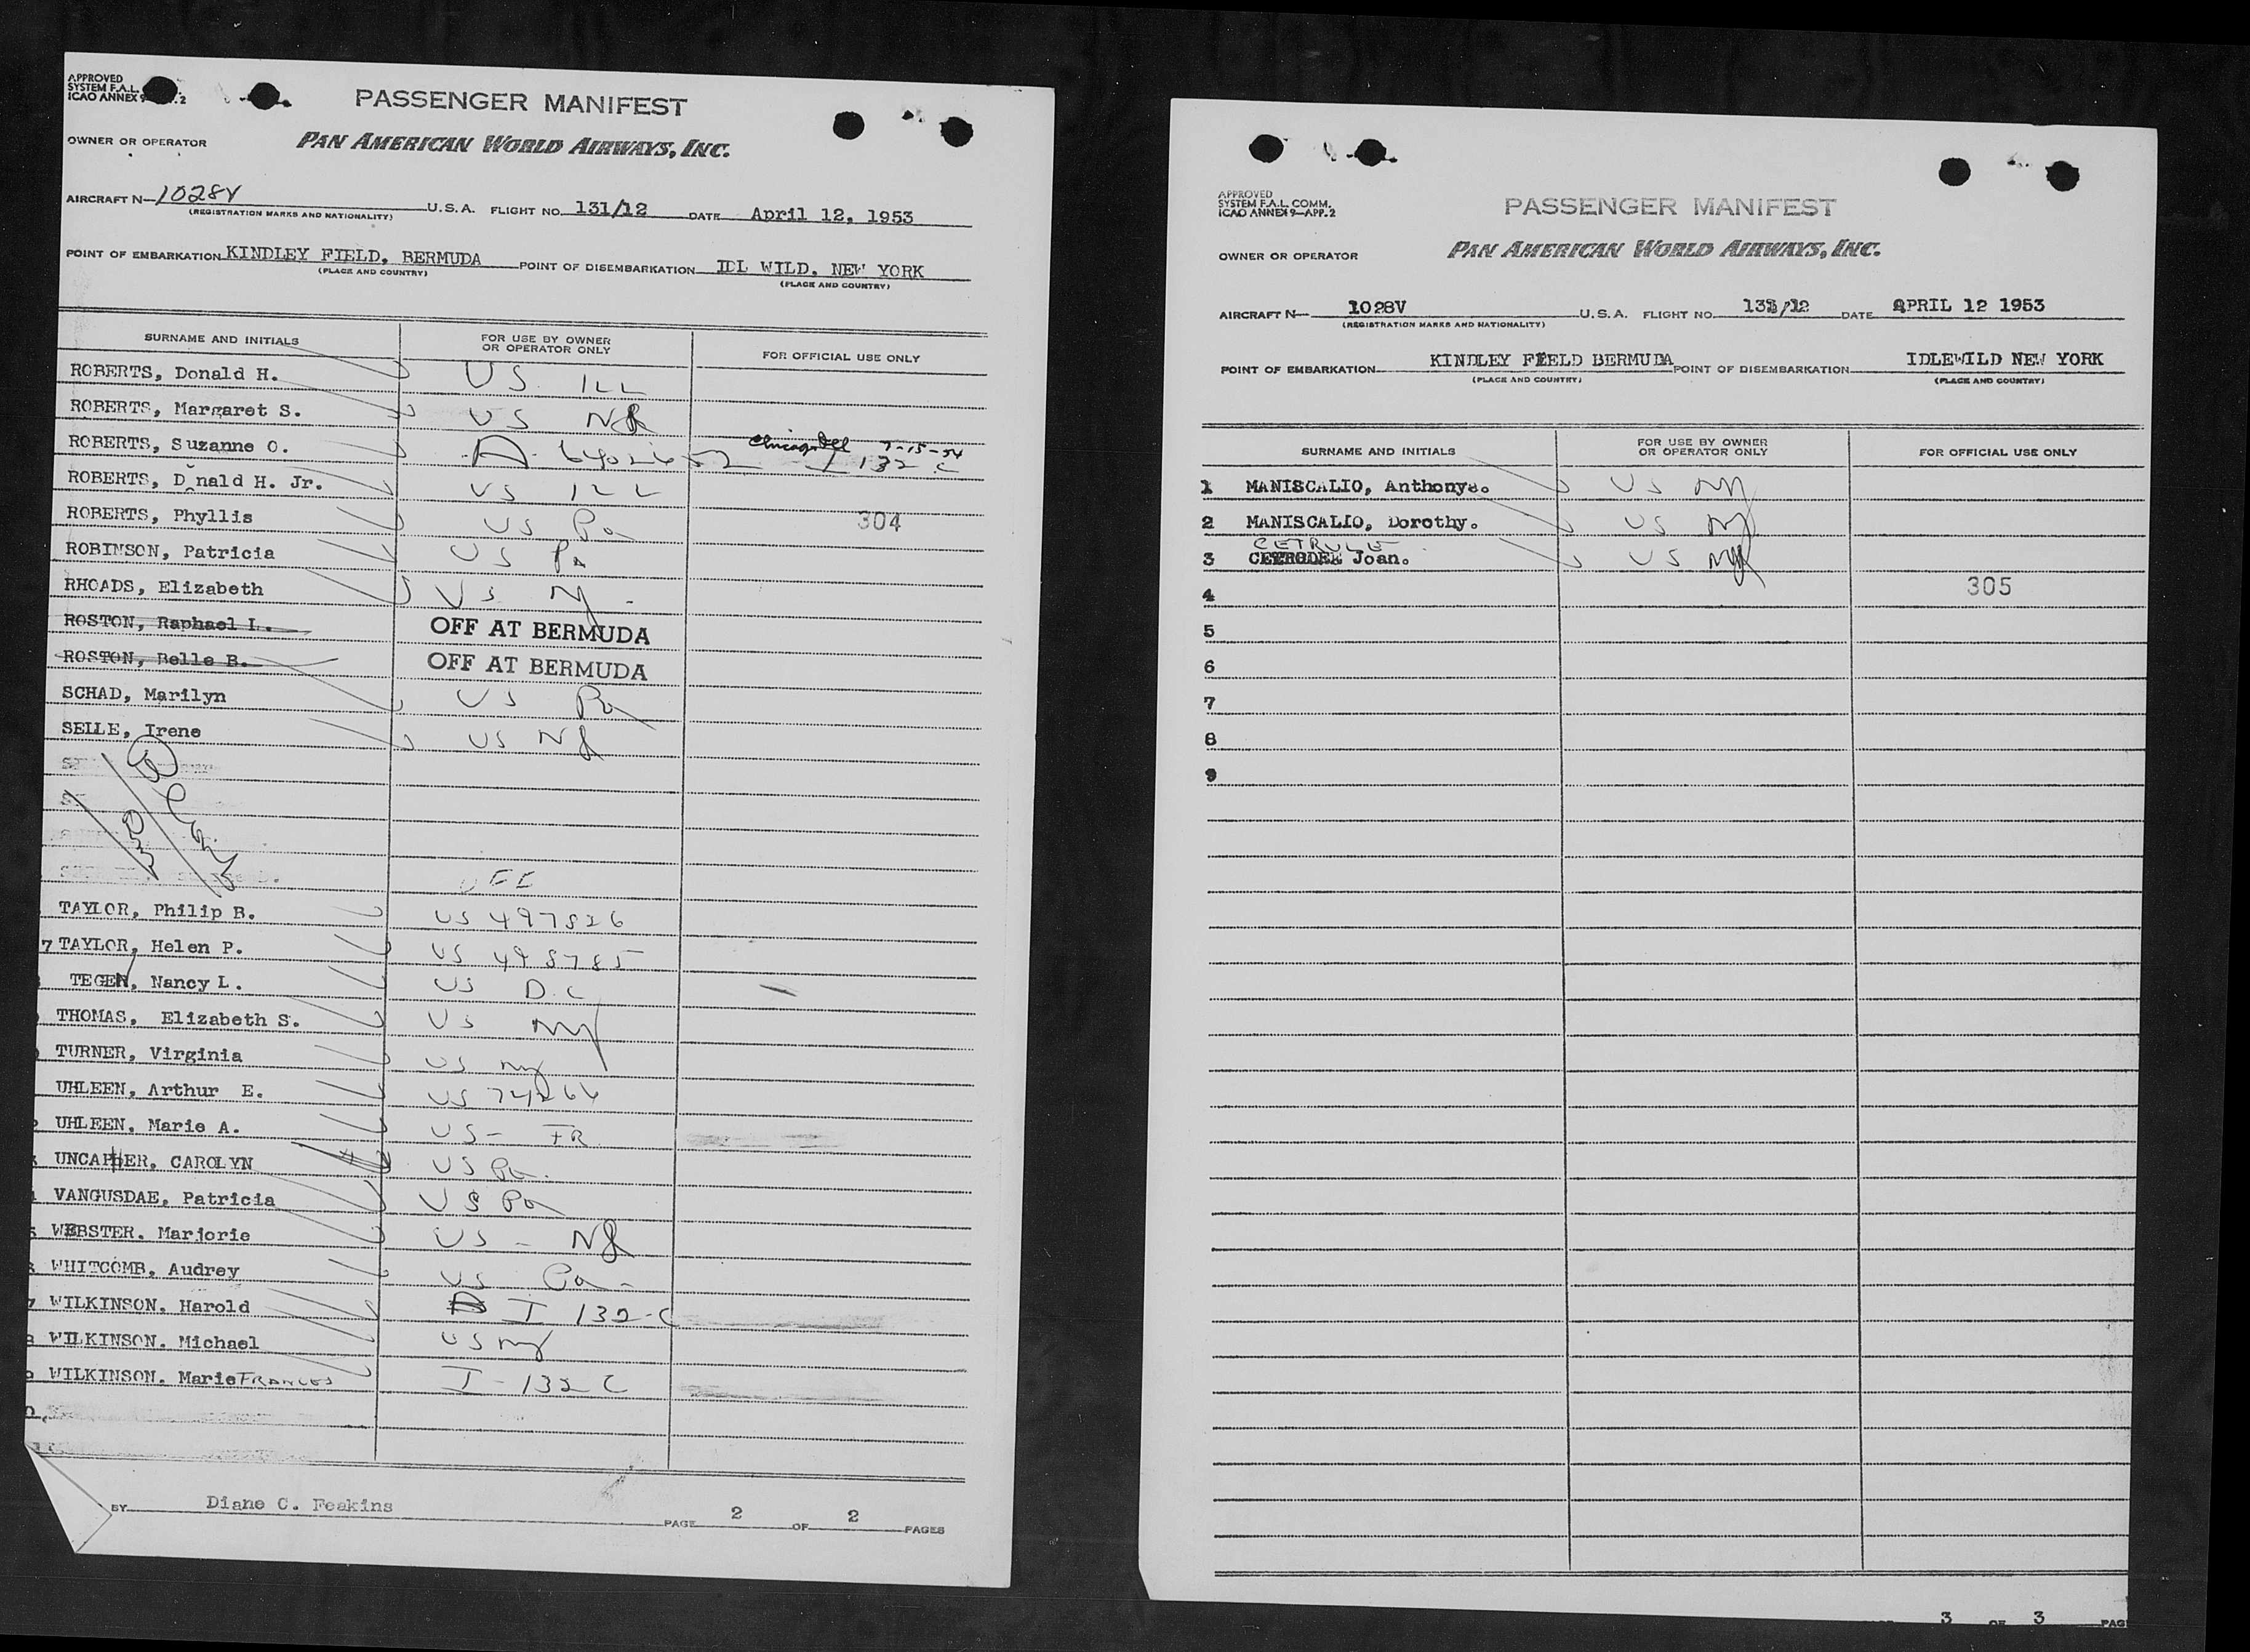 APPROVED
SYSTEM F.A.L.
ICAO ANNEX 9 .2
PASSENGER MANIFEST
OWNER OR OPERATOR PAN AMERICAN WORLD AIRWAYS, INC.
AIRCRAFT N— 1028V U.S.A. FLIGHT NO. 131/12 DATE April 12, 1953
(REGISTRATION MARKS AND NATIONALITY)
POINT OF EMBARKATION KINDLEY FIELD, BERMUDA POINT OF DISEMBARKATION IDL WILD, NEW YORK
(PLACE AND COUNTRY) (PLACE AND COUNTRY)
SURNAME AND INITIALS FOR USE BY OWNER OR OPERATOR ONLY FOR OFFICIAL USE ONLY
ROBERTS, Donald H. US ILL
ROBERTS, Margaret S. US NJ
ROBERTS, Suzanne O. A 6402652 Chicago Ill 7-15-54 I 132 C
ROBERTS, Donald H. Jr. US ILL
ROBERTS, Phyllis US Pa 304
ROBINSON, Patricia US Pa
RHOADS, Elizabeth US NJ -
ROSTON, Raphael I. OFF AT BERMUDA
ROSTON, Belle B. OFF AT BERMUDA
SCHAD, Marilyn US Pa
SELLE, Irene US NJ
TAYLOR, Philip B. US 497826
7 TAYLOR, Helen P. US 498785
TEGEN, Nancy L. US D.C
THOMAS, Elizabeth S. US NY
TURNER, Virginia US NY
UHLEEN, Arthur E. US 74266
UHLEEN, Marie A. US - FR
UNCAPHER, CAROLYN US Pa.
VANGUSDAE, Patricia US Pa
WEBSTER. Marjorie US - NJ
WHITCOMB, Audrey US Pa -
7 WILKINSON. Harold I 132-C
WILKINSON. Michael US NY
WILKINSON. Marie FRANCES I-132 C
BY Diane C. Feakins PAGE 2 OF 2 PAGES
APPROVED
SYSTEM F.A.L. COMM.
ICAO ANNEX 9—APP. 2
PASSENGER MANIFEST
OWNER OR OPERATOR PAN AMERICAN WORLD AIRWAYS, INC.
AIRCRAFT N— 1028V U.S.A. FLIGHT NO. 131/12 DATE APRIL 12 1953
(REGISTRATION MARKS AND NATIONALITY)
POINT OF EMBARKATION KINDLEY FIELD BERMUDA POINT OF DISEMBARKATION IDLEWILD NEW YORK
(PLACE AND COUNTRY) (PLACE AND COUNTRY)
SURNAME AND INITIALS FOR USE BY OWNER OR OPERATOR ONLY FOR OFFICIAL USE ONLY
1 MANISCALIO, Anthonys. US NY
2 MANISCALIO, Dorothy. US NY
CETRULE
3 Joan. US NJ
4 305
5
6
7
8
9
3 OF 3 PAG